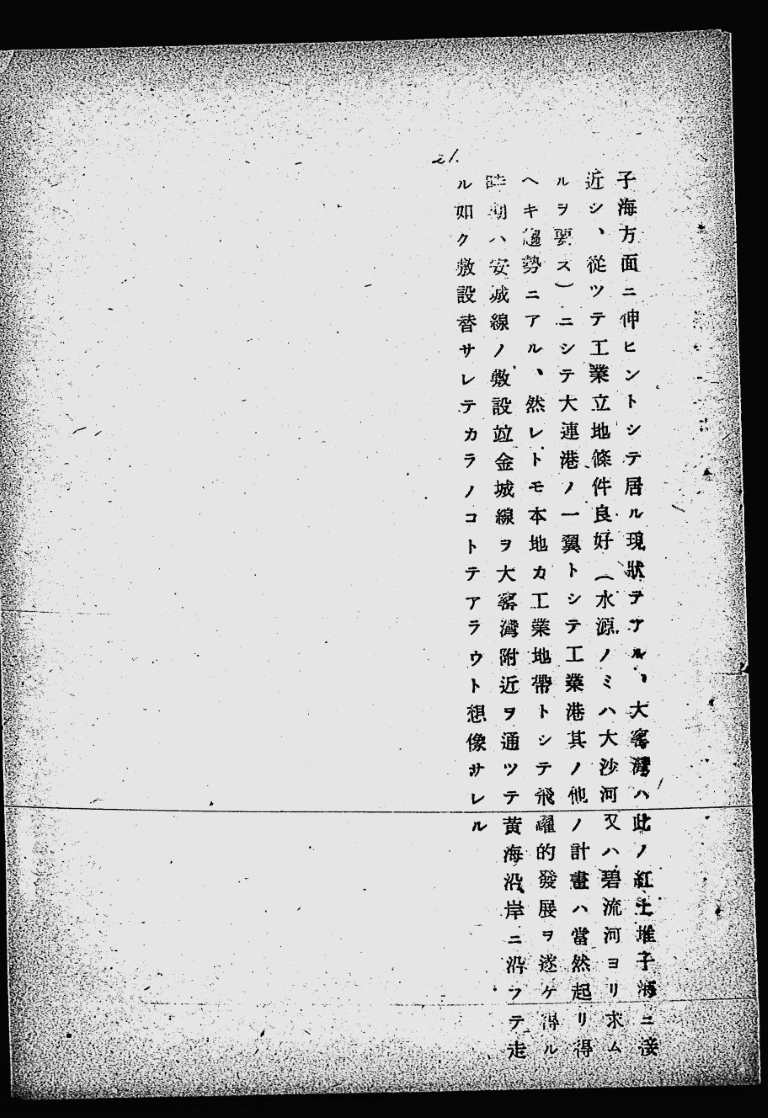 21.
子海方面ニ伸ヒントシテ居ル現狀テアル、大窰灣ハ此ノ紅土堆子海ニ接
近シ、從ツテ工業立地條件良好(水源ノミハ大沙河又ハ碧流河ヨリ求ム
ルヲ要ス)ニシテ大連港ノ一翼トシテ工業港其ノ他ノ計畫ハ當然起リ得
ヘキ趨勢ニアル、然レトモ本地カ工業地帶トシテ飛躍的發展ヲ遂ケ得ル
時期ハ安城線ノ敷設竝金城線ヲ大窰灣附近ヲ通ツテ黃海沿岸ニ沿フテ走
ル如ク敷設替サレテカラノコトテアラウト想像サレル